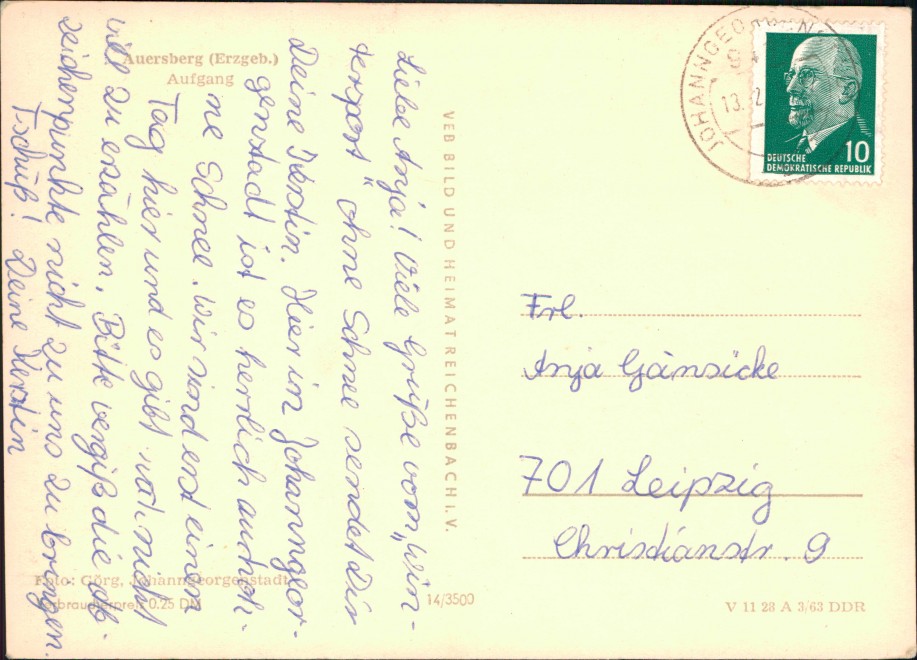 Auersberg (Erzgeb.)
Aufgang
Liebe Anja! Viele Grüße vom „Win-
tersport“ ohne Schnee sendet Dir
Deine Kerstin. Hier in Johanngeor-
genstadt ist es herrlich auch oh-
ne Schnee. Wir sind erst einen
Tag hier und es gibt nicht
viel zu erzählen. Bitte vergiß die Ab-
zeichenpunkte nicht zu uns zu bringen.
Tschüß! Deine Kerstin
Foto: Görg, Johanngeorgenstadt
Verbraucherpreis 0.25 DM
VEB BILD UND HEIMAT REICHENBACH I. V.
14/3500
JOHANNGEO
13.2
DEUTSCHE
DEMOKRATISCHE REPUBLIK
10
Frl.
Anja Gänsicke
701 Leipzig
Christianstr. 9
V 11 28 A 3/63 DDR